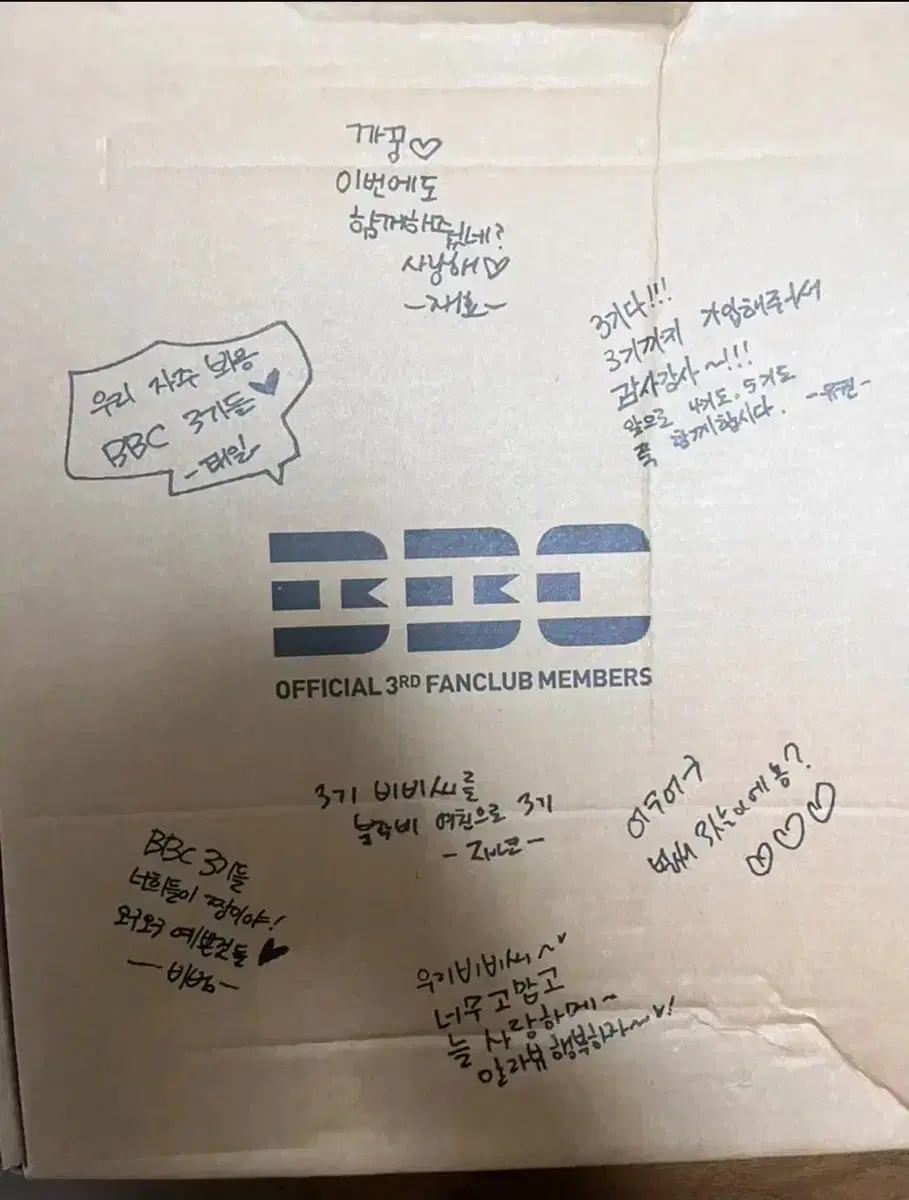 까꿍♡
이번에도
함께해주
겠네?
사랑해♡
-재효-
3기다!!!
3기까지 가입해줘서
감사감사~!!!
앞으로 4기도, 5기도
쭉 함께합시다. -유권-
우리 자주 봐용
BBC 3기들♥
-태일-
BBC
OFFICIAL 3RD FANCLUB MEMBERS
3기 비비씨를
블락비 여친으로 3기
어구어구
♡♡♡
BBC 3기들
너희들이 짱이야!
예쁜것들♥
-비범-
우리비비씨~♥
너무 고맙고
늘 사랑하메~
알라뷰 행복하자~♥!